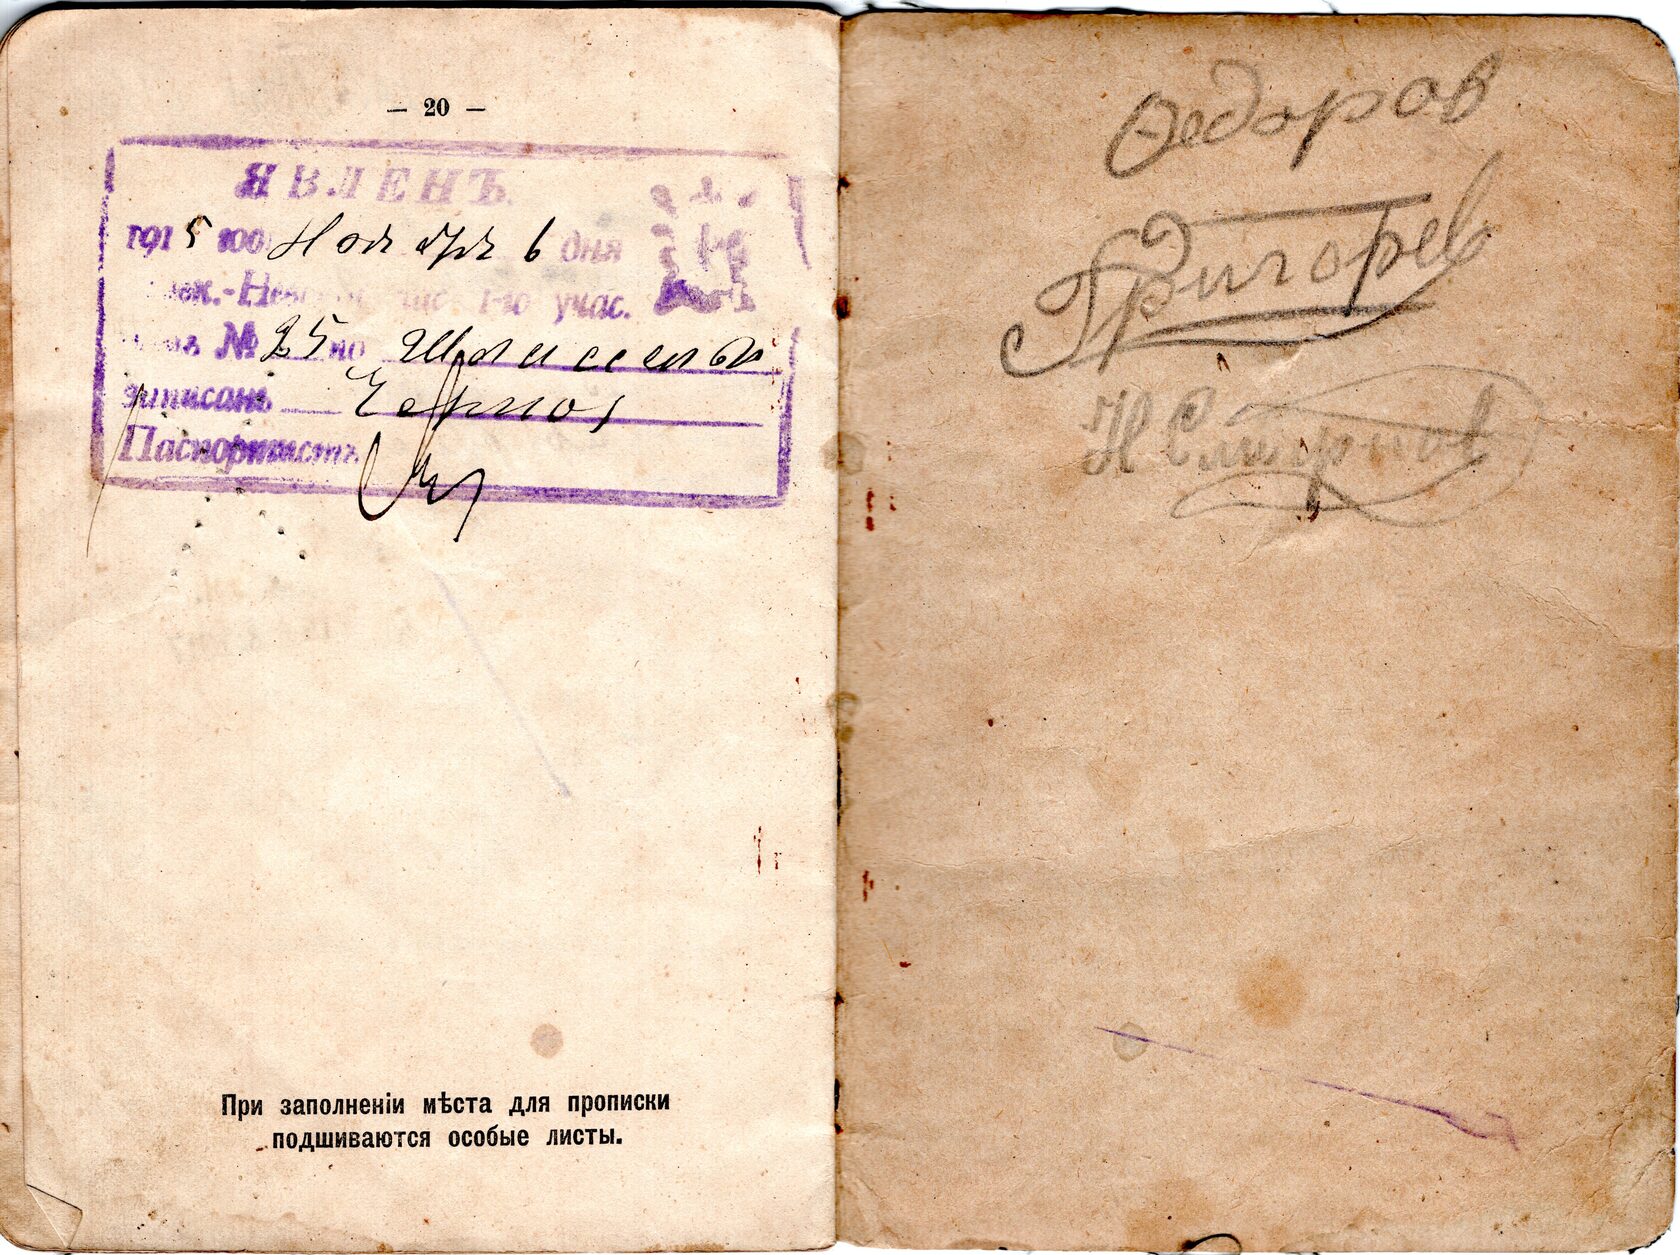 — 20 —
ЯВЛЕНЪ.
1915 Ноября 6 дня
1-го учас.
№ 25 по
записанъ
Паспортистъ
При заполненіи мѣста для прописки
подшиваются особые листы.
Ѳедоров
Григорев
Н Смирнов